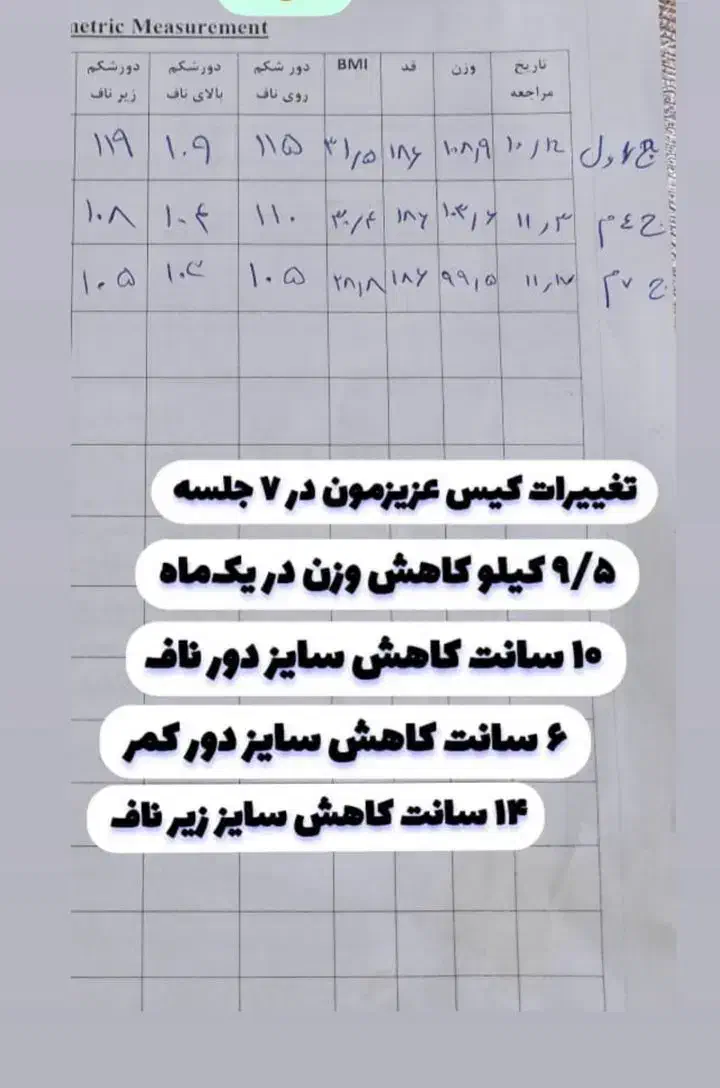 metric Measurement
تاریخ مراجعه وزن قد BMI دور شکم روی ناف دورشکم بالای ناف دورشکم زیر ناف
ج اول ۱۰/۱۲ ۱۰۸/۹ ۱۸۶ ۳۱/۵ ۱۱۵ ۱۰۹ ۱۱۹
ج ۴ م ۱۱/۳ ۱۰۳/۶ ۱۸۶ ۳۰/۴ ۱۱۰ ۱۰۴ ۱۰۸
ج ۷ م ۱۱/۱۷ ۹۹/۵ ۱۸۶ ۲۸/۸ ۱۰۵ ۱۰۳ ۱۰۵
تغییرات کیس عزیزمون در ۷ جلسه
۹/۵ کیلو کاهش وزن در یک‌ماه
۱۰ سانت کاهش سایز دور ناف
۶ سانت کاهش سایز دور کمر
۱۴ سانت کاهش سایز زیر ناف